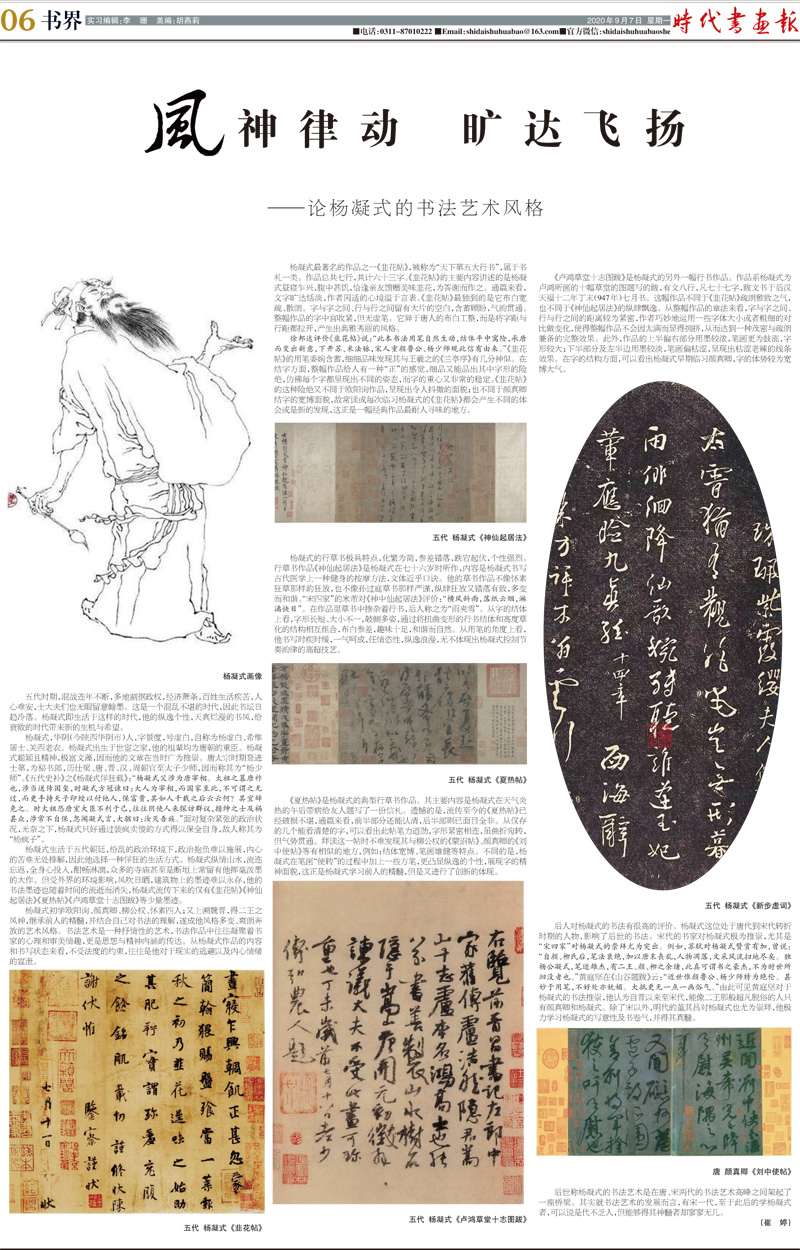 06 书界
实习编辑:李　珊　美编:胡燕莉
2020年9月7日 星期一
■电话:0311-87010222 ■Email:shidaishuhuabao@163.com■官方微信:shidaishuhuabaoshe
时代书画报
風神律动　旷达飞扬
——论杨凝式的书法艺术风格
杨凝式画像
五代时期,混战连年不断,多地割据政权,经济萧条,百姓生活疾苦,人
心难安,士大夫们也无暇留意翰墨。这是一个混乱不堪的时代,因此书坛日
趋冷落。杨凝式即生活于这样的时代,他的纵逸个性,天真烂漫的书风,给
衰败的时代带来新的生机与希望。
杨凝式,华阴(今陕西华阴市)人,字景度,号虚白,自称为杨虚白、希惟
居士、关西老农。杨凝式出生于世宦之家,他的祖辈均为唐朝的重臣。杨凝
式聪颖且精神,极富文藻,因而他的文章在当时广为推崇。唐太宗时期登进
士第,为秘书郎,历仕梁、唐、晋、汉、周朝官至太子少师,因而称其为“杨少
师”。《五代史补》之《杨凝式佯狂载》:“杨凝式父涉为唐宰相。太祖之篡唐祚
也,涉当送传国玺,时凝式方冠谏曰:大人为宰相,而国家至此,不可谓之无
过,而更手持天子印绶以付他人,保富贵,其如人千载之后云云何?其宜辞
免之。时太祖恐唐室大臣不利于己,往往阴使人来探访群议,缙绅之士及祸
甚众,涉常不自保,忽闻凝式言,大骇曰:汝灭吾族。”面对复杂紧张的政治状
况,无奈之下,杨凝式只好通过装疯卖傻的方式得以保全自身,故人称其为
“杨疯子”。
杨凝式生活于五代朝廷,纷乱的政治环境下,政治抱负难以施展,内心
的苦难无处排解,因此他选择一种佯狂的生活方式。杨凝式纵情山水,流连
忘返,全身心投入,酣畅淋漓,众多的寺庙甚至是断垣上常留有他挥毫泼墨
的大作。但受外界的环境影响,风吹日晒,建筑物上的墨迹难以永存,他的
书法墨迹也随着时间的流逝而消失,杨凝式流传下来的仅有《韭花帖》《神仙
起居法》《夏热帖》《卢鸿草堂十志图跋》等少量墨迹。
杨凝式初学欧阳询、颜真卿、柳公权、怀素四人;又上溯魏晋,得二王之
风神,继承前人的精髓,并结合自己对书法的理解,遂成他风格多变,爽朗奔
放的艺术风格。书法艺术是一种抒情性的艺术,书法作品中往往凝聚着书
家的心理和审美情趣,更是思想与精神内涵的传达。从杨凝式作品的内容
和书写状态来看,不受法度的约束,往往是他对于现实的逃避以及内心情绪
的宣泄。
五代 杨凝式《韭花帖》
杨凝式最著名的作品之一《韭花帖》,被称为“天下第五大行书”,属于书
札一类。作品总共七行,共计六十三字。《韭花帖》的主要内容讲述的是杨凝
式昼寝乍兴,腹中甚饥,恰逢亲友馈赠美味韭花,为答谢而作之。通篇来看,
文字旷达恬淡,作者闲适的心境溢于言表。《韭花帖》最独到的是它布白宽
疏、散朗。字与字之间、行与行之间留有大片的空白,含蓄顾盼,气韵贯通。
整幅作品的字中宫收紧,但无虚笔。它异于唐人的布白工整,而是将字距与
行距都拉开,产生出典雅秀丽的风格。
徐邦达评价《韭花帖》说:“此本书法用笔自然生动,结体平中寓险,承唐
而变出新意,下开苏、米法脉,宋人重颜鲁公、杨少师观此信有由来。”《韭花
帖》的用笔委婉含蓄,细细品味发现其与王羲之的《兰亭序》有几分神似。在
结字方面,整幅作品给人有一种“正”的感觉,细品又能品出其中字形的险
绝,仿佛每个字都呈现出不同的姿态,而字的重心又非常的稳定。《韭花帖》
的这种险绝又不同于欧阳询作品,呈现出令人抖擞的面貌;也不同于颜真卿
结字的宽博面貌,故常读或每次临习杨凝式的《韭花帖》都会产生不同的体
会或是新的发现,这正是一幅经典作品最耐人寻味的地方。
五代 杨凝式《神仙起居法》
杨凝式的行草书极具特点,化繁为简,参差错落,跌宕起伏,个性强烈。
行草书作品《神仙起居法》是杨凝式在七十六岁时所作,内容是杨凝式书写
古代医学上一种健身的按摩方法,文体近乎口诀。他的草书作品不像怀素
狂草那样的狂放,也不像孙过庭草书那样严谨,纵肆狂放又错落有致,多变
而和谐。“宋四家”的米芾对《神中仙起居法》评价:“横风斜雨,落纸云烟,淋
漓快目”。在作品里草书中掺杂着行书,后人称之为“雨夹雪”。从字的结体
上看,字形长短、大小不一,欹侧多姿,通过将扭曲变形的行书结体和高度草
化的结构相互组合,布白参差,趣味十足,和谐而自然。从用笔的角度上看,
他书写时疾时缓,一气呵成,任情恣性,纵逸浪漫,无不体现出杨凝式控制节
奏韵律的高超技艺。
五代 杨凝式《夏热帖》
《夏热帖》是杨凝式的典型行草书作品。其主要内容是杨凝式在天气炎
热的午后带病给友人题写了一份信札。遗憾的是,流传至今的《夏热帖》已
经破损不堪,通篇来看,前半部分还能认清,后半部则已面目全非。从仅存
的几个能看清楚的字,可以看出此帖笔力遒劲,字形紧密相连,虽曲折宛转,
但气势贯通。拜读这一帖时不难发现其与柳公权的《蒙诏帖》、颜真卿的《刘
中使帖》等有相似的地方,例如:结体宽博、笔画雄健等特点。不同的是,杨
凝式在笔画“使转”的过程中加上一些方笔,更凸显纵逸的个性,展现字的精
神面貌,这正是杨凝式学习前人的精髓,但是又进行了创新的体现。
五代 杨凝式《卢鸿草堂十志图跋》
《卢鸿草堂十志图跋》是杨凝式的另外一幅行书作品。作品系杨凝式为
卢鸿所画的十幅草堂的图题写的跋,有文八行,凡七十七字,跋文书于后汉
天福十二年丁未(947年)七月书。这幅作品不同于《韭花帖》疏朗雅致之气,
也不同于《神仙起居法》的纵肆飘逸。从整幅作品的章法来看,字与字之间、
行与行之间的距离较为紧密,作者巧妙地运用一些字体大小或者粗细的对
比做变化,使得整幅作品不会因太满而显得拥挤,从而达到一种茂密与疏朗
兼备的完整效果。此外,作品的上半偏右部分用墨较浓,笔画更为肢底,字
形较大;下半部分及左半边用墨较淡,笔画偏枯涩,呈现出枯涩老辣的线条
效果。在字的结构方面,可以看出杨凝式早期临习颜真卿,字的体势较为宽
博大气。
五代 杨凝式《新步虚词》
后人对杨凝式的书法有很高的评价。杨凝式这位处于唐代到宋代转折
时期的人物,影响了后世的书法。宋代的书家对杨凝式极为推崇,尤其是
“宋四家”对杨凝式的崇拜尤为突出。例如,苏轼对杨凝式赞赏有加,曾说:
“自颜、柳氏后,笔法衰绝,加以唐末丧乱,人物凋落,文采风流扫地尽矣。独
杨公凝式,笔迹雄杰,有二王、颜、柳之余绪,此真可谓书之豪杰,不为时世所
汩没者也。”黄庭坚在《山谷题跋》云:“近世惟颜鲁公、杨少师特为绝伦。甚
妙于用笔,不好处亦妩媚。大抵更无一点一画俗气。”由此可见黄庭坚对于
杨凝式的书法推崇,他认为自晋以来至宋代,能像二王那般超凡脱俗的人只
有颜真卿和杨凝式。除了宋以外,明代的董其昌对杨凝式也尤为崇拜,他极
力学习杨凝式的写意性及书卷气,并得其真髓。
唐 颜真卿《刘中使帖》
后世称杨凝式的书法艺术是在唐、宋两代的书法艺术高峰之间架起了
一座桥梁。其实就书法艺术的发展而言,有宋一代,至于此后的学杨凝式
者,可以说是代不乏人,但能够得其神髓者却寥寥无几。
(崔　婷)